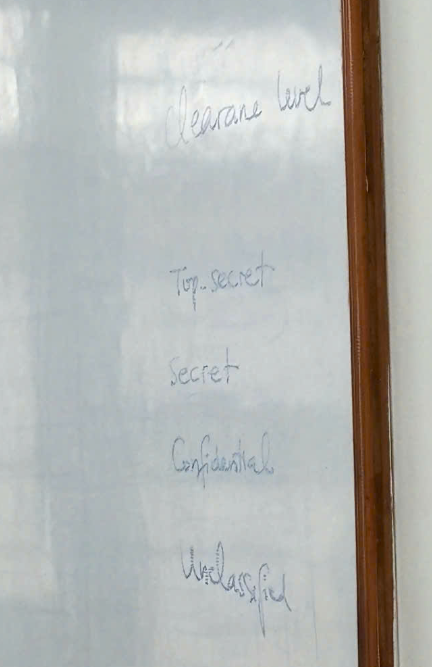 Clearane level
Top-secret
Secret
Confidential
Unclassified